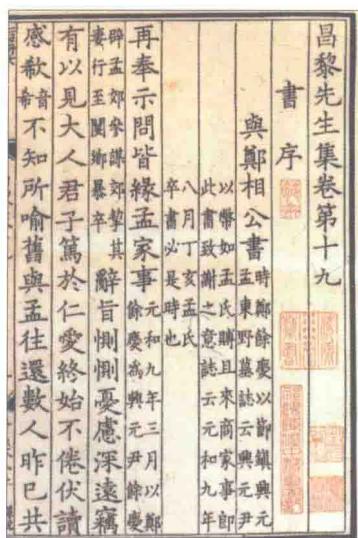 昌黎先生集卷第十九
書 序
與鄭相公書
時鄭餘慶以節鎮興元
孟東野墓誌云興元尹
以幣如孟氏賻且來商家事即
此書致謝之意誌云元和九年
八月丁亥孟氏
卒書必是時也
再奉示問皆緣孟家事
元和九年三月以鄭
餘慶為興元尹餘慶
辟孟郊參謀郊挈其
妻行至閿鄉暴卒
辭旨惻惻憂慮深遠竊
有以見大人君子篤於仁愛終始不倦伏讀
感欷音希不知所喻舊與孟往還數人昨已共